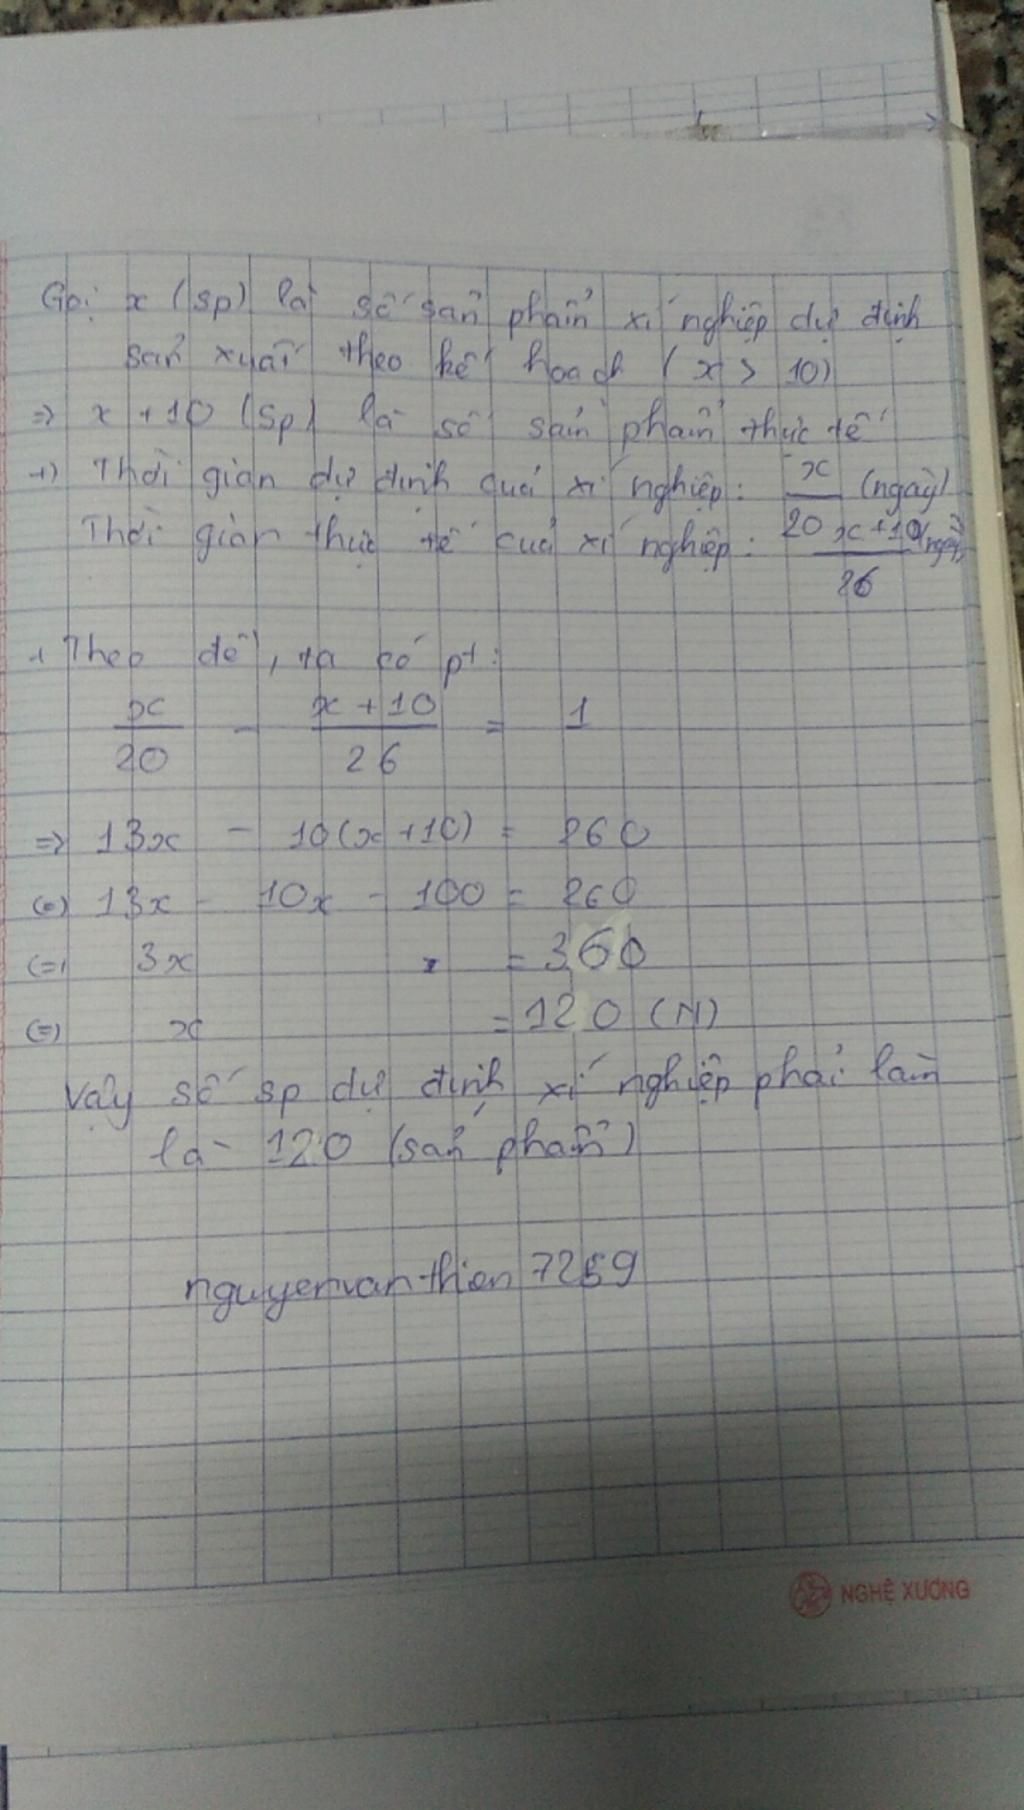 Gọi x (sp) là số sản phẩm xí nghiệp dự định
sản xuất theo kế hoạch (x > 10)
=> x + 10 (sp) là số sản phẩm thực tế
+) Thời gian dự định của xí nghiệp: x/20 (ngày)
Thời gian thực tế của xí nghiệp: x+10/26 (ngày)
+ Theo đề, ta có pt:
x/20 - x+10/26 = 1
=> 13x - 10(x+10) = 260
(=) 13x - 10x - 100 = 260
(=) 3x = 360
(=) x = 120 (N)
Vậy số sp dự định xí nghiệp phải làm
là 120 (sản phẩm)
nguyenvanthien 7259
NGHỆ XƯƠNG